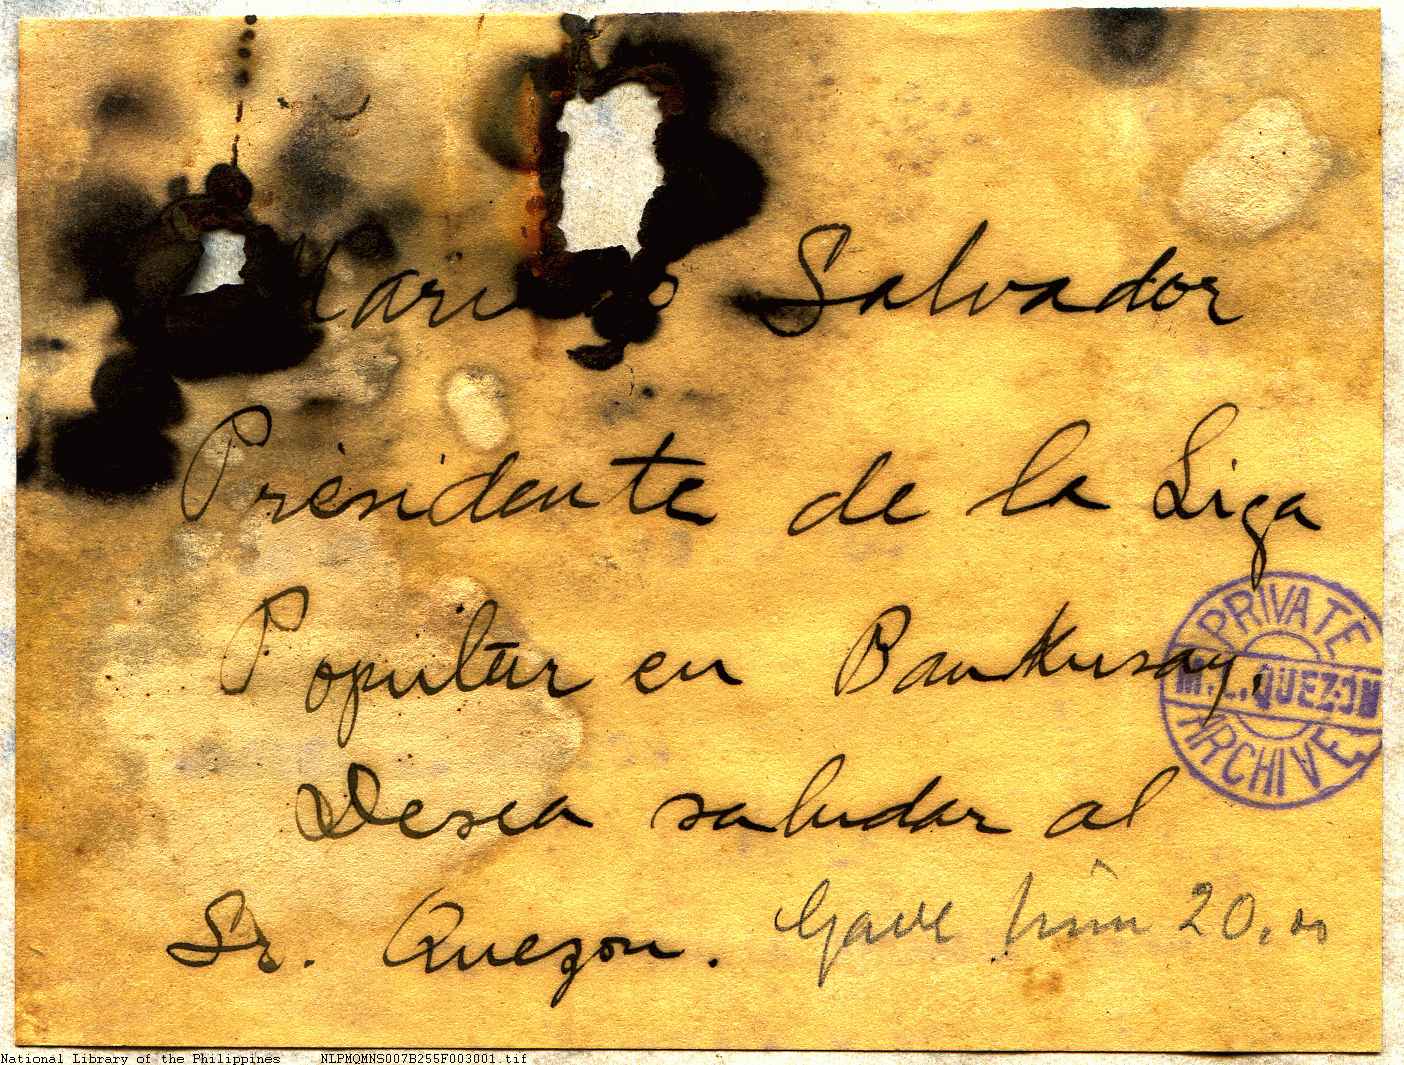 Salvador
Presidente de la Liga
Popular en Bankusay,
Desea saludar al
Sr. Quezon.
Gave him 20.00
PRIVATE
M.L.QUEZON
ARCHIVE
National Library of the Philippines NLPMQMNS007B255F003001.tif